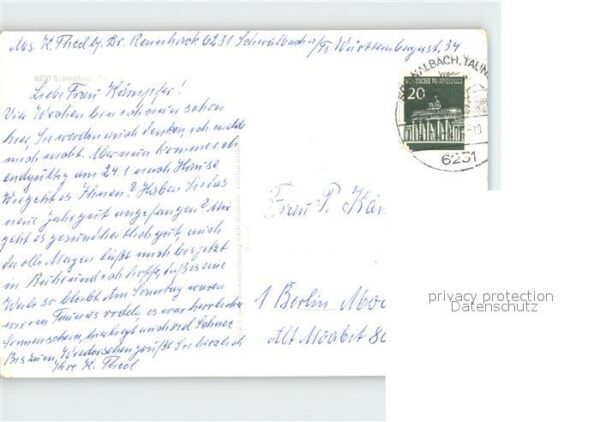 Abs. K. Thed b/ Dr. Rennhack 6231 Schwalbach /Ts Württembergst. 34
6231 Schwalbach
SCHWALBACH, TAUN
DEUTSCHE BUNDESPOST
20
6231
Liebe Frau Kämpfer!
Vier Wochen bin ich nun schon
hier, Sie werden auch denken ich melde
mich nicht. Aber nun komme ich
endgültig am 24.1 nach Hause
Wie geht es Ihnen? Haben Sie das
neue Jahr gut angefangen? Mir
geht es gesundheitlich gut, auch
der olle Magen läßt mich bis jetzt
in Ruhe und ich hoffe, daß es eine
Weile so bleibt. Am Sonntag waren
wir im Taunus rodeln, es war herrlicher
Sonnenschein, hier liegt auch viel Schnee
Bis zum Wiedersehen grüßt Sie herzlich
Ihre K. Thed
Frau P. Käm
1 Berlin Moa
Alt Moabit 80
privacy protection
Datenschutz